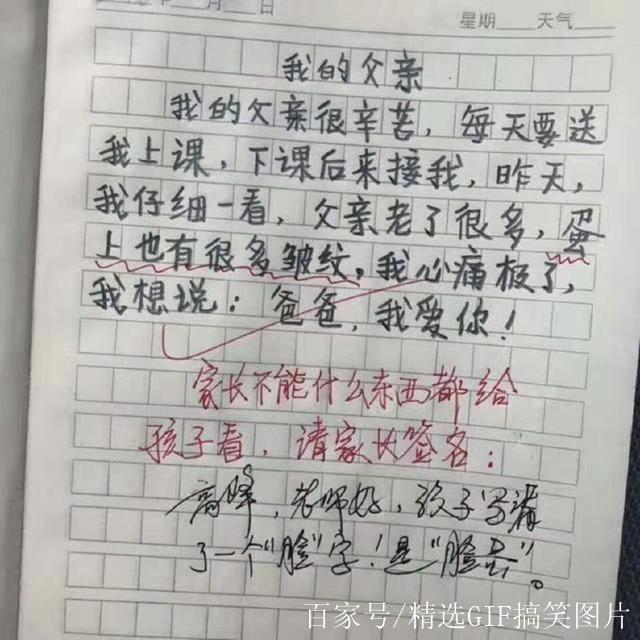 月 日
星期 天气
我的父亲
我的父亲很辛苦，每天要送
我上课，下课后来接我，昨天，
我仔细一看，父亲老了很多，蛋
上也有很多皱纹，我心痛极了，
我想说：爸爸，我爱你！
家长不能什么东西都给
孩子看，请家长签名：
高峰，老师好，孩子写漏
了一个“脸”字！是“脸蛋”。
百家号/精选GIF搞笑图片